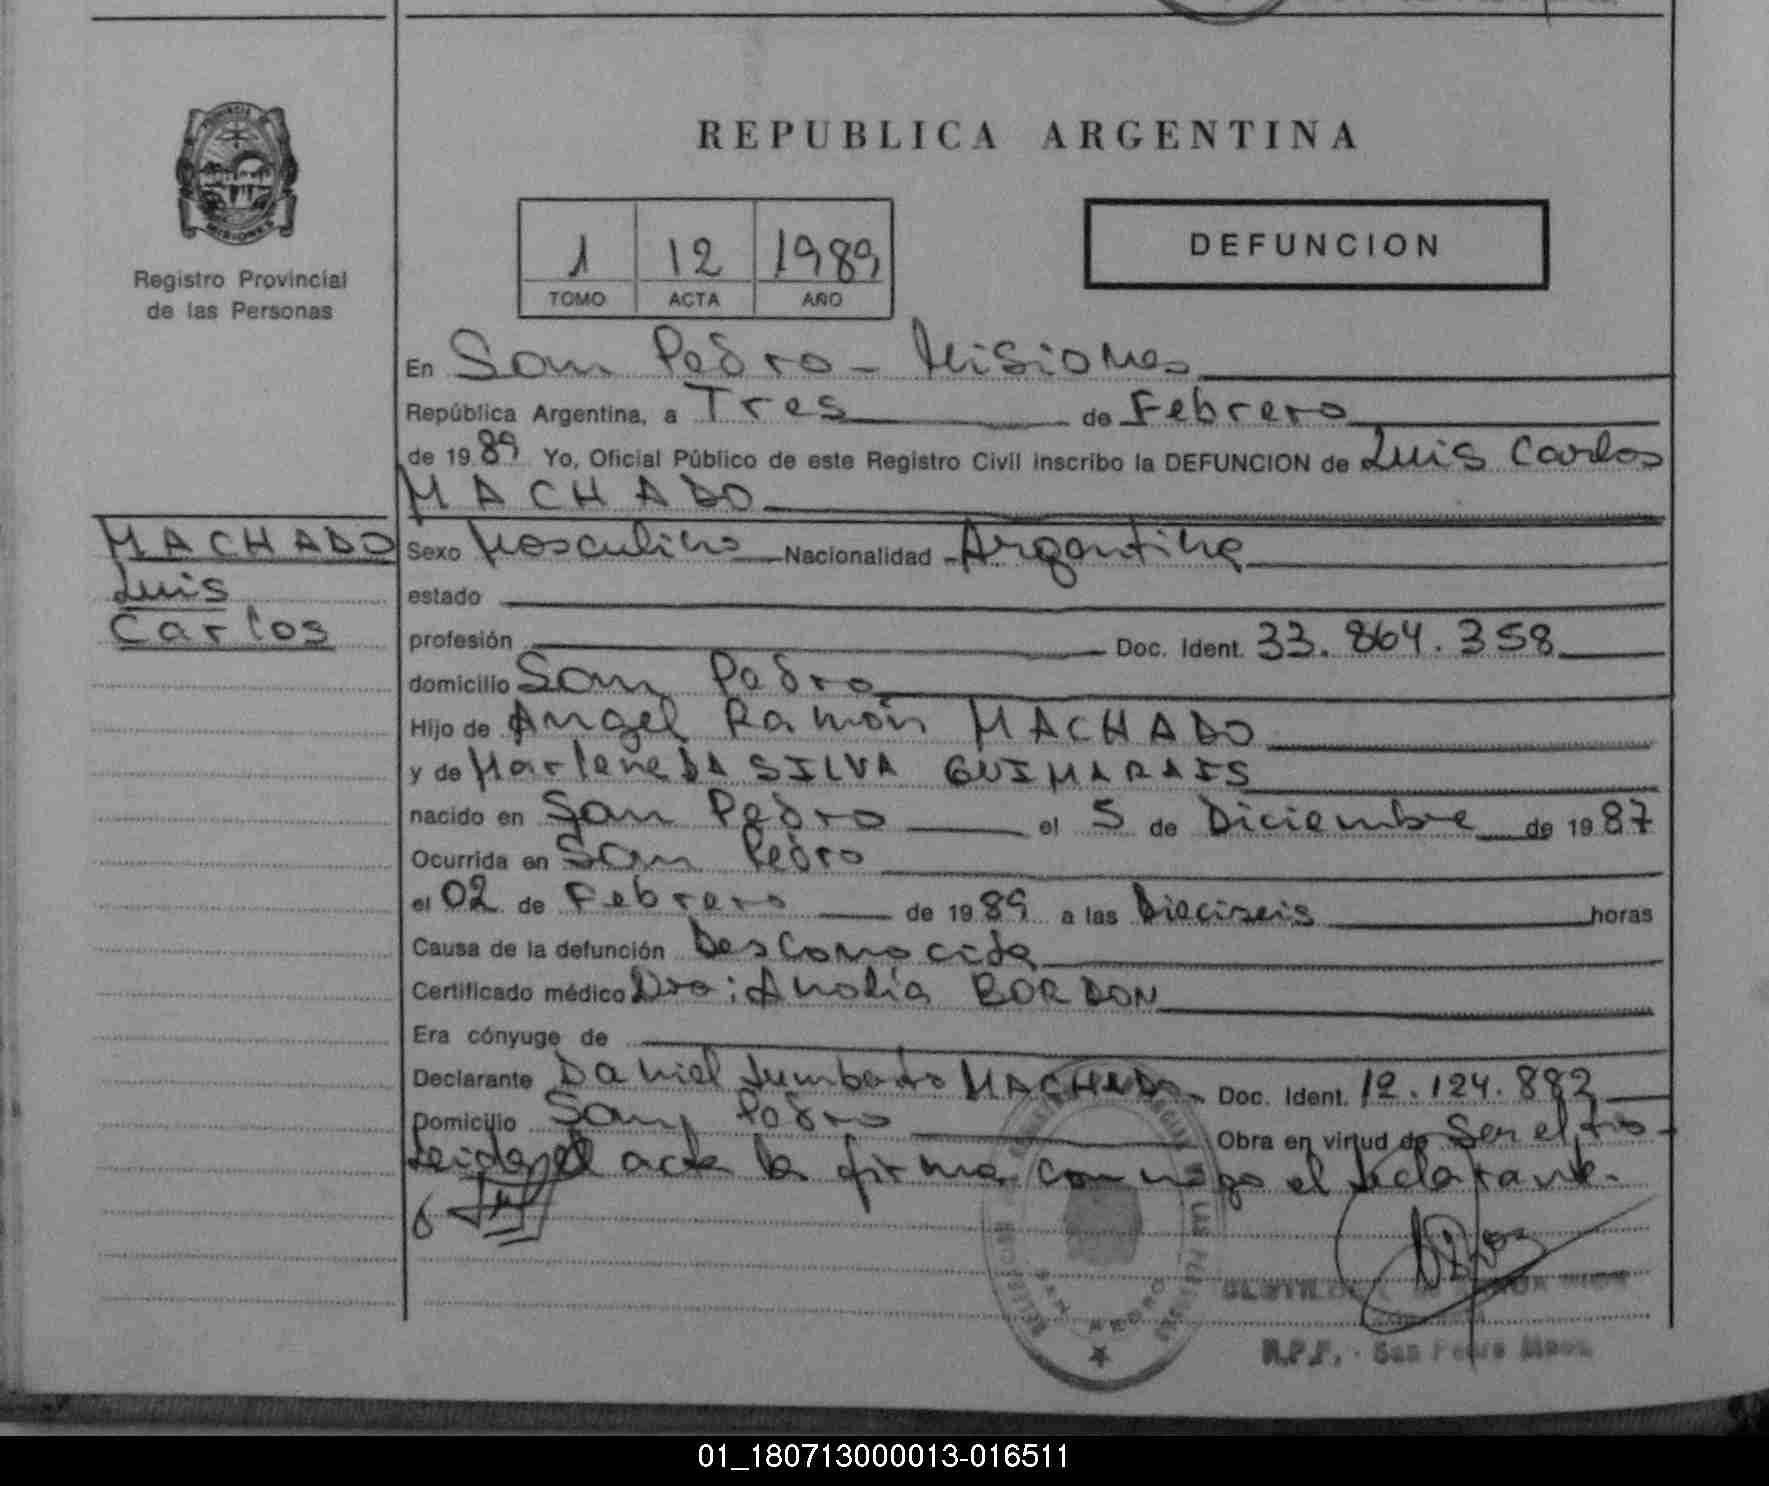 REPUBLICA ARGENTINA
PROVINCIA
MISIONES
Registro Provincial
de las Personas
1 12 1989
TOMO ACTA AÑO
DEFUNCION
En San Pedro - Misiones
República Argentina, a Tres de Febrero
de 1989 Yo, Oficial Público de este Registro Civil inscribo la DEFUNCION de Luis Carlos
MACHADO
MACHADO
Luis
Carlos
Sexo Masculino Nacionalidad Argentina
estado
profesión Doc. Ident. 33.864.358
domicilio San Pedro
Hijo de Angel Ramón MACHADO
y de Marlene DA SILVA GUIMARAIS
nacido en San Pedro el 5 de Diciembre de 1987
Ocurrida en San Pedro
el 02 de Febrero de 1989 a las Dieciseis horas
Causa de la defunción Desconocida
Certificado médico Dra: Analia BORDON
Era cónyuge de
Declarante Daniel MACHADO Doc. Ident. 12.124.882
Domicilio San Pedro Obra en virtud de Ser el tio
Leida el acta la firma conmigo el declarante.
SAN PEDRO
R.P.P. - San Pedro Mnes.
01_180713000013-016511